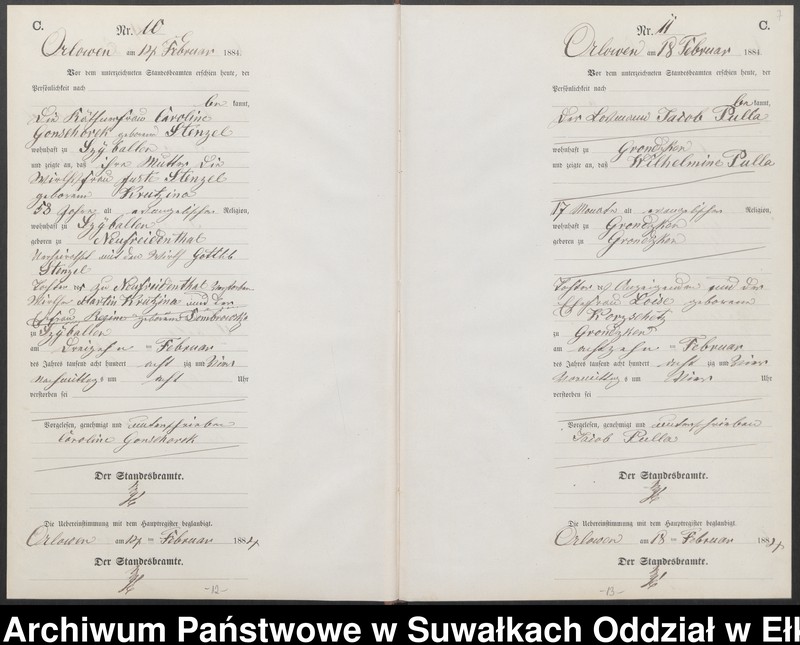 C.
Nr. 10
Orlowen am 14 Februar 1884.
Vor dem unterzeichneten Standesbeamten erschien heute, der
Persönlichkeit nach
be kannt,
Die Käthnerfrau Caroline
Gonschorek geborene Stenzel
wohnhaft zu Szÿballen
und zeigte an, daß ihre Mutter die
Wirthsfrau Stenzel
geborene Krutzina
53 Jahre alt evangelischer Religion,
wohnhaft zu Szÿballen
geboren zu Neufreidenthal
verheirathet mit dem Wirth Gottlieb
Stenzel
Tochter zu Neufreidenthal
Wirths Martin Krutzina und der
Ehefrau Regine geborene
zu Szÿballen
am dreizehn ten Februar
des Jahres tausend acht hundert acht zig und vier
Nachmittags um acht Uhr
verstorben sei
Vorgelesen, genehmigt und unterschrieben
Caroline Gonschorek
Der Standesbeamte.
Die Uebereinstimmung mit dem Hauptregister beglaubigt.
Orlowen am 14 ten Februar 1884
Der Standesbeamte.
-12-
7
Nr. 11
C.
Orlowen am 18 Februar 1884.
Vor dem unterzeichneten Standesbeamten erschien heute, der
Persönlichkeit nach
be kannt,
Der Losmann Jacob Pulla
wohnhaft zu Grondzken
und zeigte an, daß Wilhelmine Pulla
17 Monate alt evangelischer Religion,
wohnhaft zu Grondzken
geboren zu Grondzken
Tochter des Anzeigenden und der
Ehefrau Loise geborene
zu Grondzken
am achtzehn ten Februar
des Jahres tausend acht hundert acht zig und vier
Vormittags um vier Uhr
verstorben sei
Vorgelesen, genehmigt und unterschrieben
Jacob Pulla
Der Standesbeamte.
Die Uebereinstimmung mit dem Hauptregister beglaubigt.
Orlowen am 18 ten Februar 1884
Der Standesbeamte.
-13-
Archiwum Państwowe w Suwałkach Oddział w Ełk